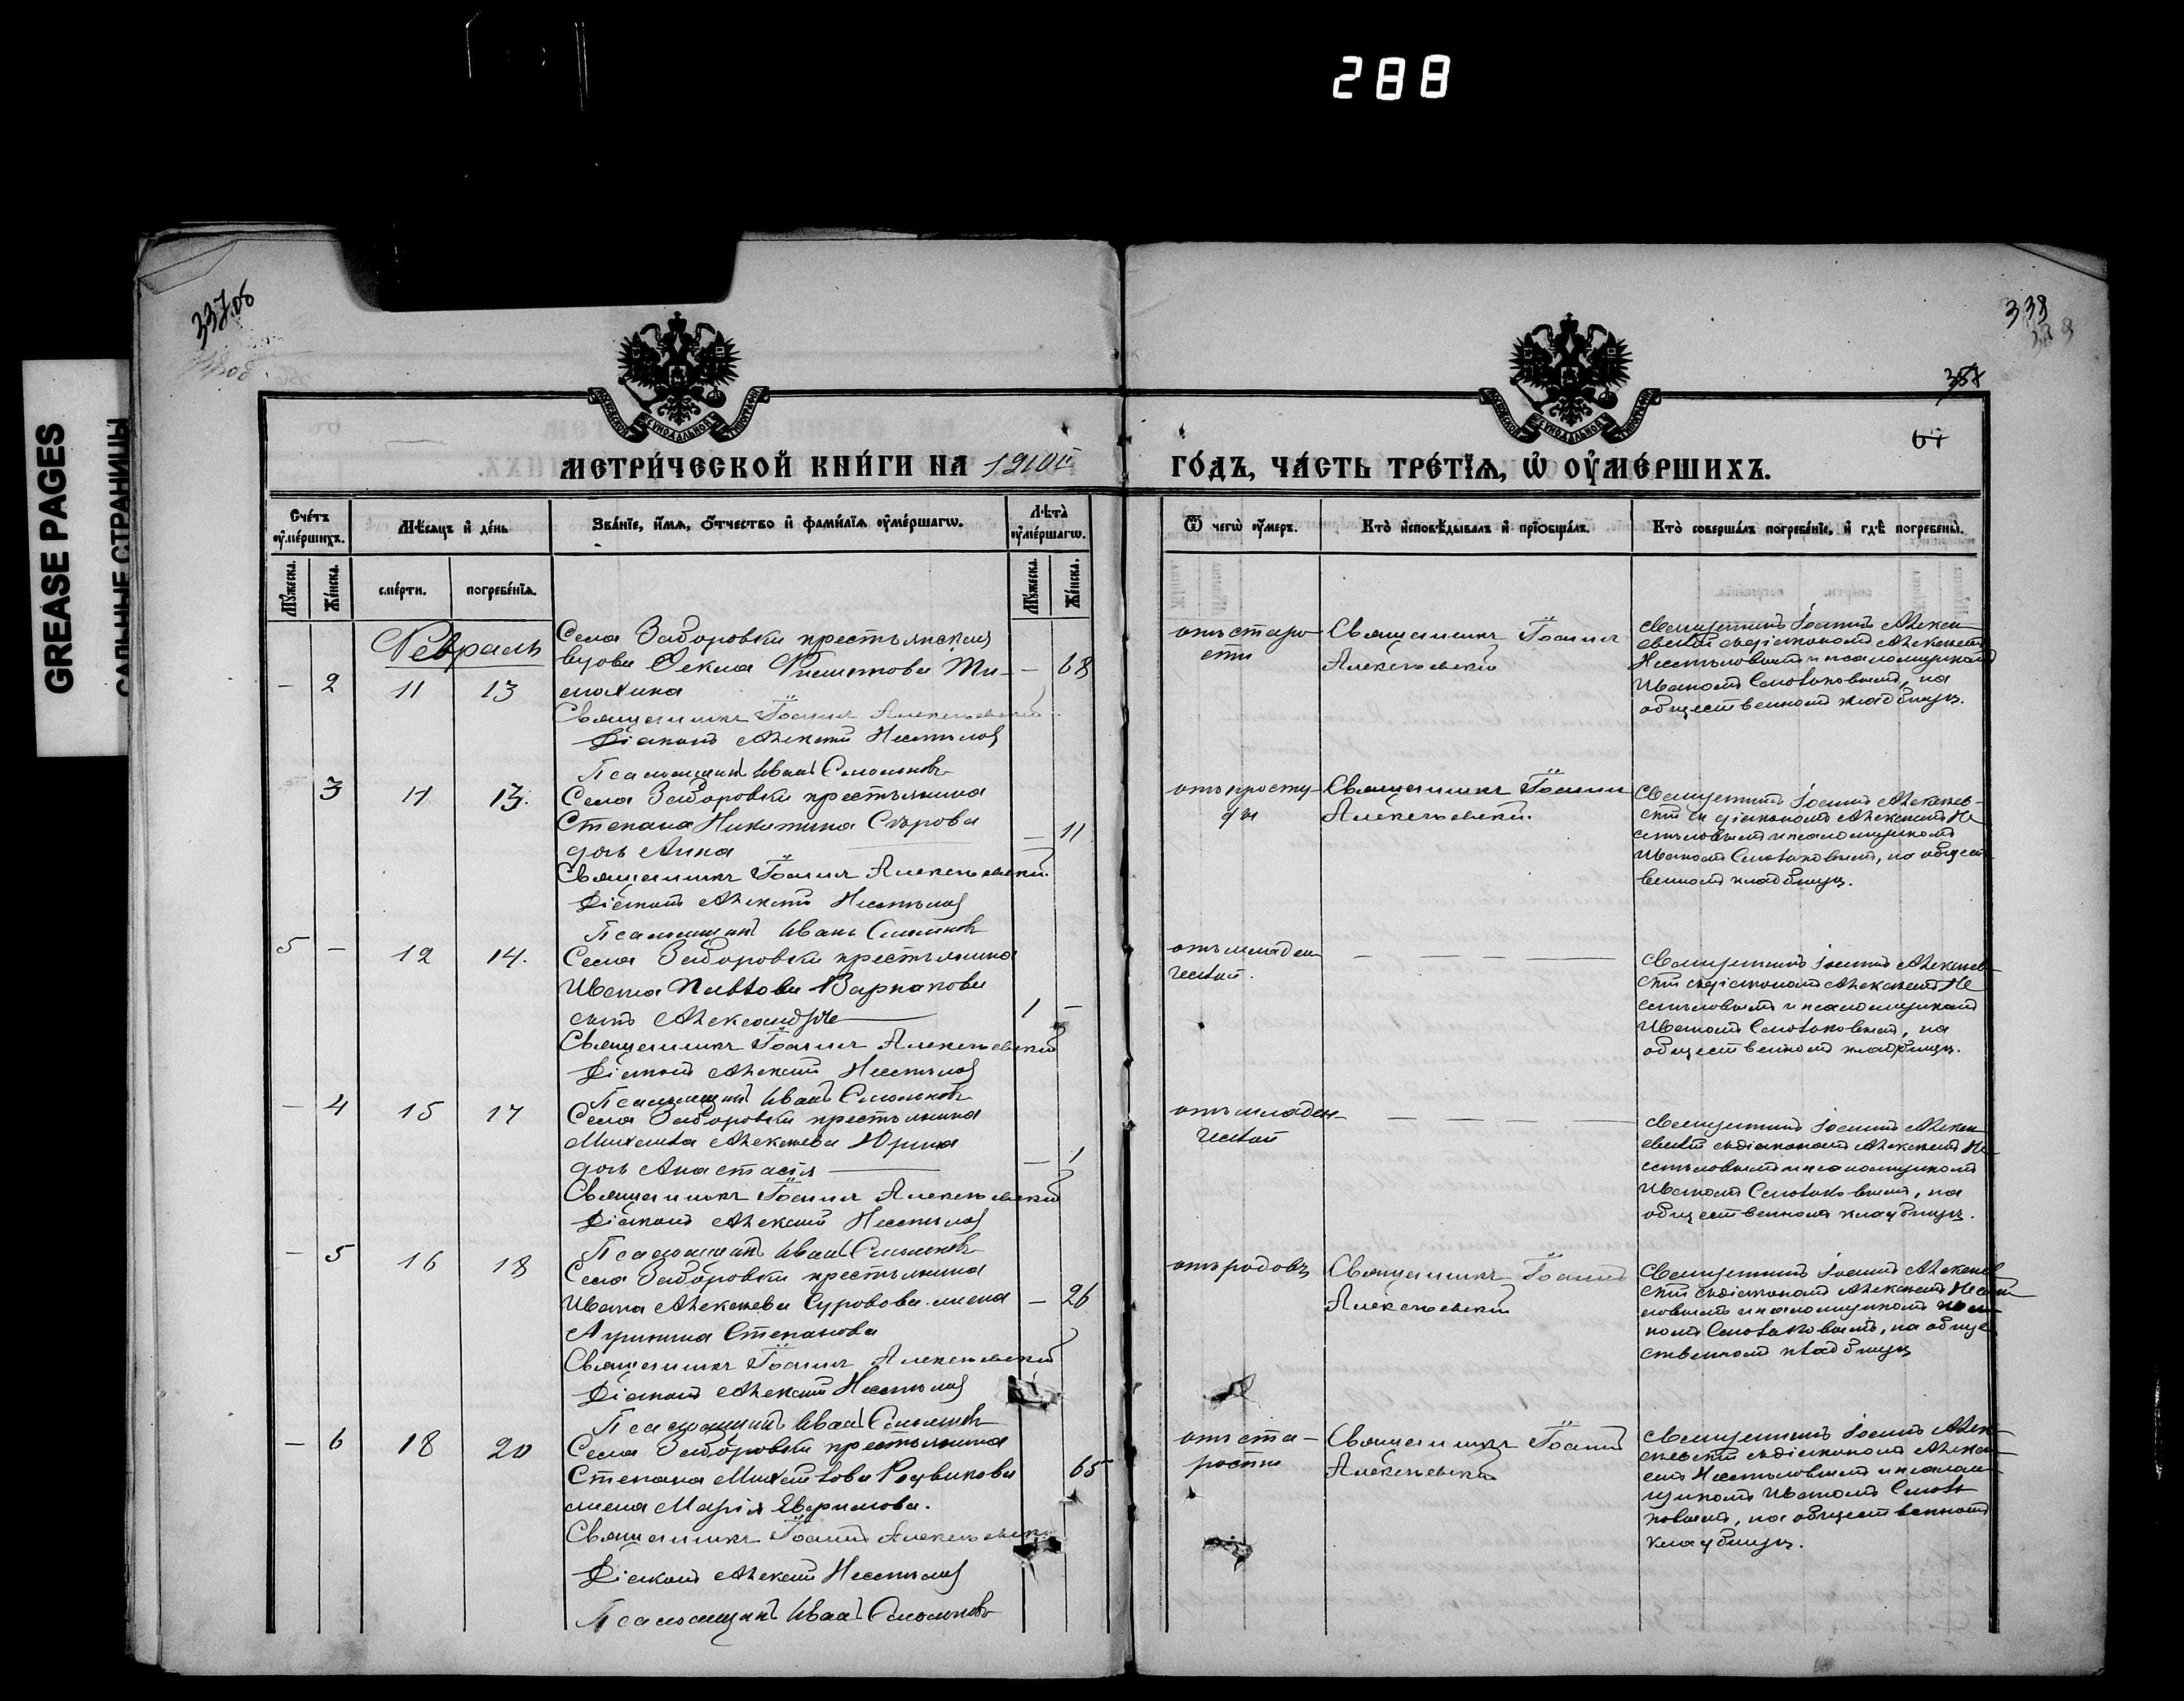 288
GREASE PAGES
САЛЬНЫЕ СТРАНИЦЫ
337об
338
67
МЕТРИ́ЧЕСКОЙ КНИ́ГИ НА 1910й
ГО́ДЪ, ЧА́СТЬ ТРЕ́ТІѦ, Ѡ ОУ҆МЕ́РШИХЪ.
Счéтъ оу҆мéршихъ.
Мѣ́сяцъ и҆ де́нь
Зва́нїе, и҆́мѧ, ѻ҆́тчество и҆ фами́лїѧ оу҆ме́ршагѡ.
Лѣ́та оу҆ме́ршагѡ.
Ѿ чегѡ̀ оу҆́меръ.
Кто̀ и҆сповѣ́дывалъ и҆ прїѡбща́лъ.
Кто̀ соверша́лъ погребе́нїе, и҆ гдѣ̀ погребены̀.
Мꙋ́жеска.
Же́нска.
сме́рти.
погребе́нїѧ.
Мꙋ́жеска.
Же́нска.
Февраль
Села Заборовки крестьянская
вдова Фекла Филиппова Ти-
мохина
— 2 11 13 — 68
Священникъ Іоаннъ Алексѣевскій
Діаконъ Алексій
Псаломщикъ Иванъ Смольковъ
отъ старо-
сти
Священникъ Іоаннъ
Алексѣевскій
Священникъ Іоаннъ Алексѣ-
евскій съ діакономъ Алексѣемъ
и псаломщикомъ
Иваномъ Смольковымъ, на
общественномъ кладбищѣ.
3 11 13. — 11
Села Заборовки крестьянина
Степана Никитина Сѣрова
дочь Анна
Священникъ Іоаннъ Алексѣевскій
Діаконъ Алексій
Псаломщикъ Иванъ Смольковъ
отъ просту-
ды
Священникъ Іоаннъ
Алексѣевскій.
Священникъ Іоаннъ Алексѣев-
скій съ діакономъ Алексѣемъ
и псаломщикомъ
Иваномъ Смольковымъ, на общест-
венномъ кладбищѣ.
5 — 12 14. 1 —
Села Заборовки крестьянина
Ивана Павлова Варнакова
сынъ Александръ
Священникъ Іоаннъ Алексѣевскій
Діаконъ Алексій
Псаломщикъ Иванъ Смольковъ
отъ младен-
ческой.
— — — — —
Священникъ Іоаннъ Алексѣев-
скій съ діакономъ Алексѣемъ
и псаломщикомъ
Иваномъ Смольковымъ, на
общественномъ кладбищѣ.
— 4 15 17 — 1
Села Заборовки крестьянина
Михаила Алексѣева Юрина
дочь Анастасія
Священникъ Іоаннъ Алексѣевскій
Діаконъ Алексій
Псаломщикъ Иванъ Смольковъ
отъ младен-
ческой
— — — —
Священникъ Іоаннъ Алексѣ-
евскій съ діакономъ Алексѣемъ
и псаломщикомъ
Иваномъ Смольковымъ, на
общественномъ кладбищѣ.
— 5 16 18 — 26
Села Заборовки крестьянина
Ивана Алексѣева Суровова жена
Агрипина Степанова
Священникъ Іоаннъ Алексѣевскій
Діаконъ Алексій
Псаломщикъ Иванъ Смольковъ
отъ родовъ
Священникъ Іоаннъ
Алексѣевскій
Священникъ Іоаннъ Алексѣев-
скій съ діакономъ Алексѣемъ
и псаломщикомъ Ива-
номъ Смольковымъ, на обще-
ственномъ кладбищѣ
— 6 18 20 65
Села Заборовки крестьянина
Степана Михайлова
жена Марія
Священникъ Іоаннъ Алексѣевскій
Діаконъ Алексій
Псаломщикъ Иванъ Смольковъ
отъ ста-
рости
Священникъ Іоаннъ
Алексѣевскій
Священникъ Іоаннъ Алек-
сѣевскій съ діакономъ Алексѣ-
емъ и псалом-
щикомъ Иваномъ Смоль-
ковымъ, на общественномъ
кладбищѣ.